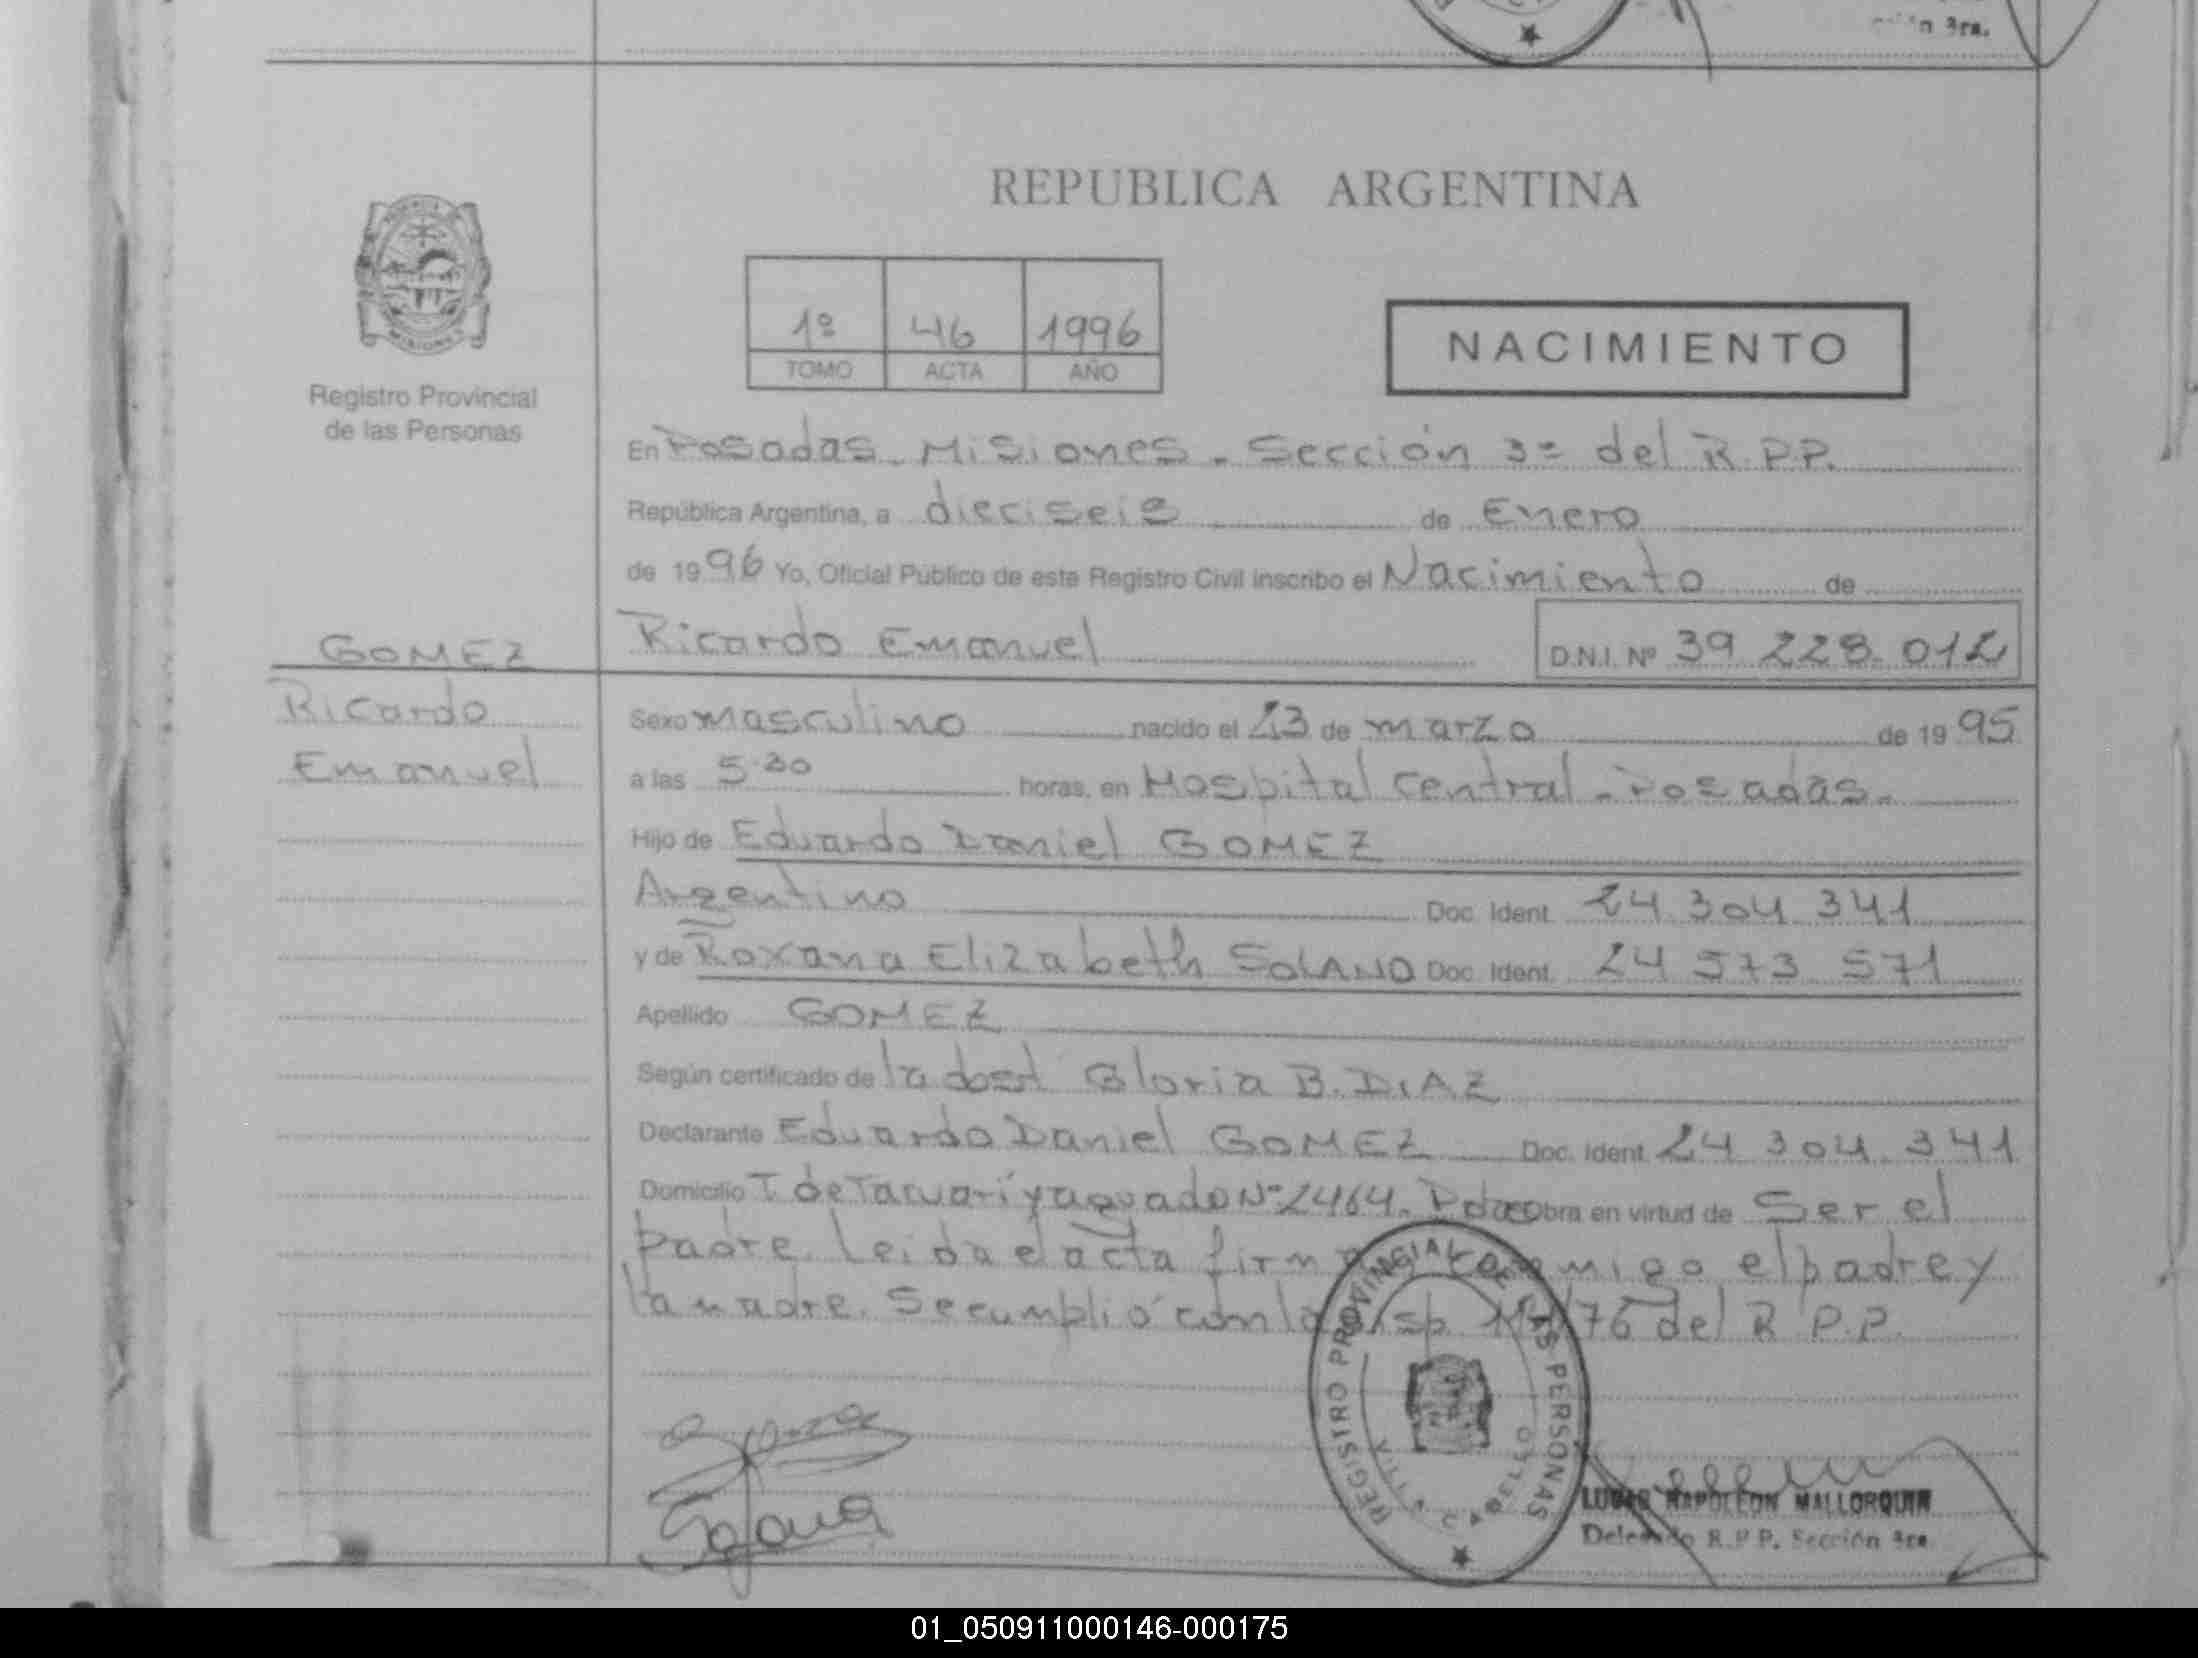 3ra.
REPUBLICA ARGENTINA
1º 46 1996
TOMO ACTA AÑO
NACIMIENTO
MISIONES
Registro Provincial
de las Personas
En Posadas - Misiones - Sección 3º del R.P.P.
República Argentina, a dieciseis de Enero
de 1996 Yo, Oficial Público de este Registro Civil inscribo el Nacimiento de
GOMEZ
Ricardo
Emanuel
Ricardo Emanuel D.N.I. Nº 39 228 012
Sexo masculino nacido el 13 de marzo de 1995
a las 5.30 horas, en Hospital Central - Posadas -
Hijo de Eduardo Daniel GOMEZ
Argentino Doc. Ident. 24 304 341
y de Roxana Elizabeth SOLANO Doc. Ident. 24 573 571
Apellido GOMEZ
Según certificado de la obst Gloria B. DIAZ
Declarante Eduardo Daniel GOMEZ Doc. Ident. 24 304 341
Domicilio T de Tacuarí y aguado Nº 2464. Pdas Obra en virtud de Ser el
padre. Leida el acta firma conmigo el padre y
la madre. Se cumplió con la Disp. /76 del R.P.P.
REGISTRO PROVINCIAL DE LAS PERSONAS
VILLA CABELLO
LUCAS NAPOLEON MALLORQUIN
Delegado R.P.P. Sección 3ra.
01_050911000146-000175